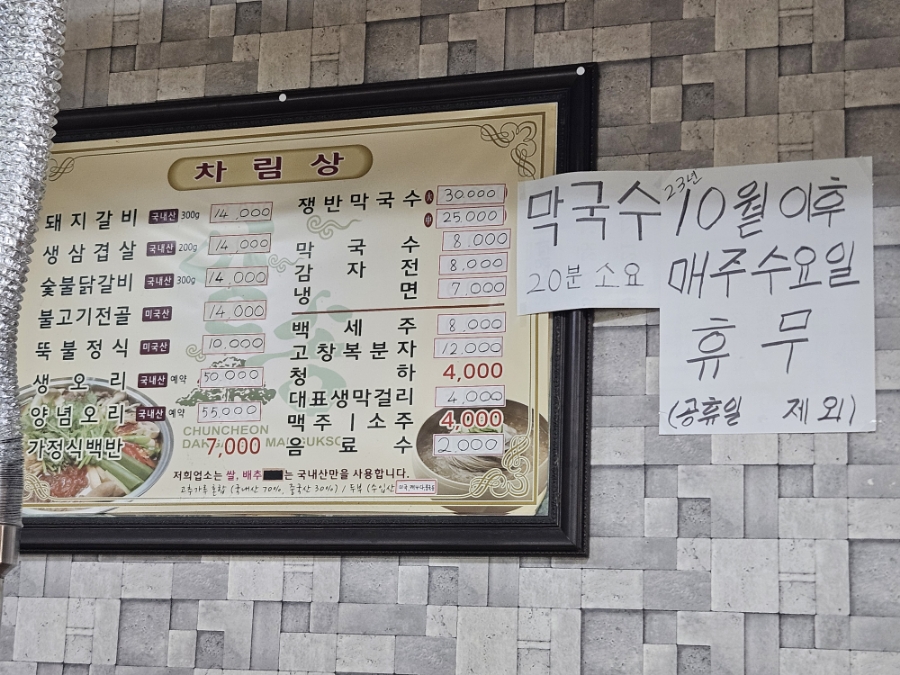 차림상
돼지갈비 국내산 300g 14,000
생삼겹살 국내산 200g 14,000
숯불닭갈비 국내산 300g 14,000
불고기전골 미국산 14,000
뚝불정식 미국산 10,000
생오리 국내산 예약 50,000
양념오리 국내산 예약 55,000
가정식백반 7,000
쟁반막국수 大 30,000
中 25,000
막국수 8,000
감자전 8,000
냉면 7,000
백세주 8,000
고창복분자 12,000
청하 4,000
대표생막걸리 4,000
맥주 | 소주 4,000
음료수 2,000
CHUNCHEON
저희업소는 쌀, 배추 는 국내산만을 사용합니다.
고추가루 혼합 (국내산 70%, 중국산 30%) / 두부 (수입산
막국수
20분 소요
23년
10월 이후
매주수요일
휴무
(공휴일 제외)